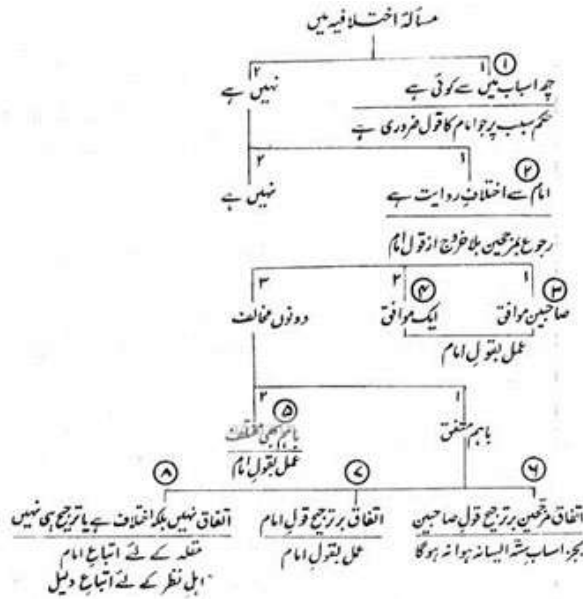 مسألۂ اختلافیہ میں
۱ ①
۲
چھ اسباب میں سے کوئی ہے
نہیں ہے
حکم سبب پر جو امام کا قول ضروری ہے
۱ ②
۲
امام سے اختلافِ روایت ہے
نہیں ہے
رجوع بمرجحین بلا خروج از قولِ امام
۱ ③
۲ ④
۳
صاحبین موافق
ایک موافق
دونوں مخالف
عمل بقولِ امام
۱
۲ ⑤
باہم متفق
باہم بھی مختلف
عمل بقولِ امام
⑥
⑦
⑧
اتفاق مرجحین بر ترجیح قولِ صاحبین
بجز اسباب ستہ ایسا نہ ہوا نہ ہوگا
اتفاق بر ترجیح قولِ امام
عمل بقولِ امام
اتفاق نہیں بلکہ اختلاف ہے یا ترجیح ہی نہیں
مقلد کے لئے اتباعِ امام
اہلِ نظر کے لئے اتباعِ دلیل